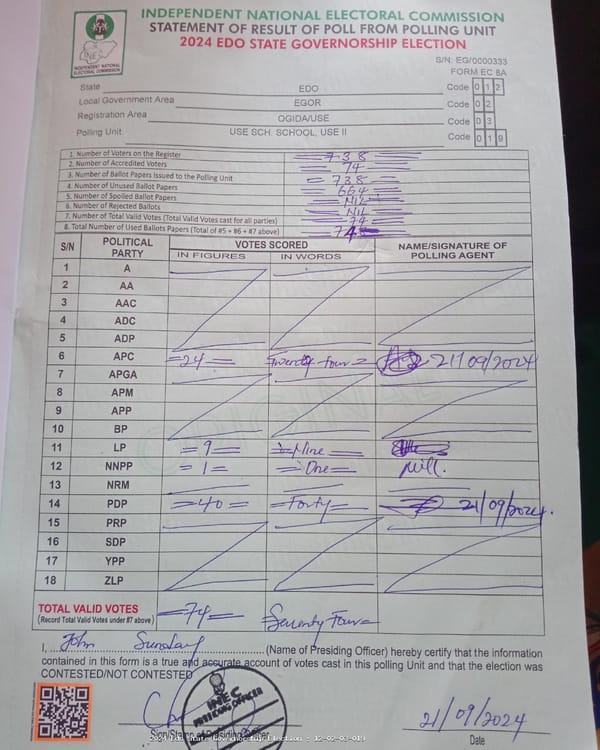 INDEPENDENT NATIONAL ELECTORAL COMMISSION
STATEMENT OF RESULT OF POLL FROM POLLING UNIT
2024 EDO STATE GOVERNORSHIP ELECTION
INEC
INDEPENDENT NATIONAL ELECTORAL COMMISSION
S/N: EG/0000333
FORM EC 8A
State EDO Code 0 1 2
Local Government Area EGOR Code 0 2
Registration Area OGIDA/USE Code 0 3
Polling Unit USE SCH. SCHOOL, USE II Code 0 1 9
1. Number of Voters on the Register =738=
2. Number of Accredited Voters =74=
3. Number of Ballot Papers Issued to the Polling Unit =738=
4. Number of Unused Ballot Papers =664=
5. Number of Spoiled Ballot Papers =NIL=
6. Number of Rejected Ballots =NIL=
7. Number of Total Valid Votes (Total Valid Votes cast for all parties) =74=
8. Total Number of Used Ballots Papers (Total of #5 + #6 + #7 above) =74=
S/N POLITICAL PARTY VOTES SCORED NAME/SIGNATURE OF POLLING AGENT
IN FIGURES IN WORDS
1 A
2 AA
3 AAC
4 ADC
5 ADP
6 APC =24= Twenty four= 21/09/2024
7 APGA
8 APM
9 APP
10 BP
11 LP =9= =Nine=
12 NNPP =1= =One= Nill.
13 NRM
14 PDP =40= =Forty= 21/09/2024.
15 PRP
16 SDP
17 YPP
18 ZLP
TOTAL VALID VOTES =74= Seventy Four=
(Record Total Valid Votes under #7 above)
I, John Sunday (Name of Presiding Officer) hereby certify that the information
contained in this form is a true and accurate account of votes cast in this polling Unit and that the election was
CONTESTED/NOT CONTESTED
INEC
PRESIDING OFFICER
21/09/2024
Sign/Stamp of Presiding Officer Date
2024 Edo State Governorship Election - 12-02-03-019